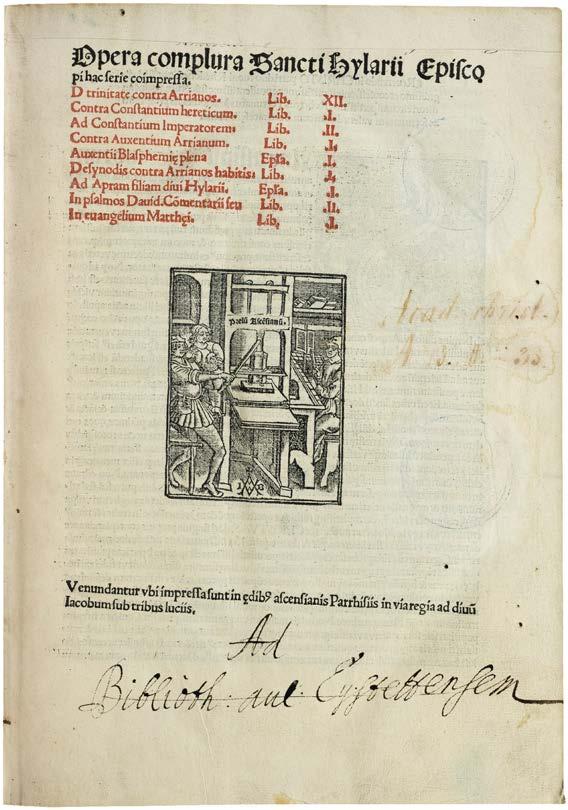 Opera complura Sancti Hylarii Episco
pi hac serie coimpressa.
D trinitate contra Arrianos. Lib. XII.
Contra Constantium hereticum. Lib. .I.
Ad Constantium Imperatorem. Lib. .II.
Contra Auxentium Arrianum. Lib. .I.
Auxentii Blasphemię plena Epľa. .I.
De synodis contra Arrianos habitis: Lib. .I.
Ad Apram filiam diui Hylarii. Epľa. .I.
In psalmos Dauid. Cōmentarii seu Lib. .II.
In euangelium Matthęi. Lib. .I.
Prelū Ascēsianū.
Venundantur vbi impressa sunt in ędibꝰ ascensianis Parrhisiis in via regia ad diuū
Iacobum sub tribus luciis.
Ad
Biblioth: aul: Eystettensem